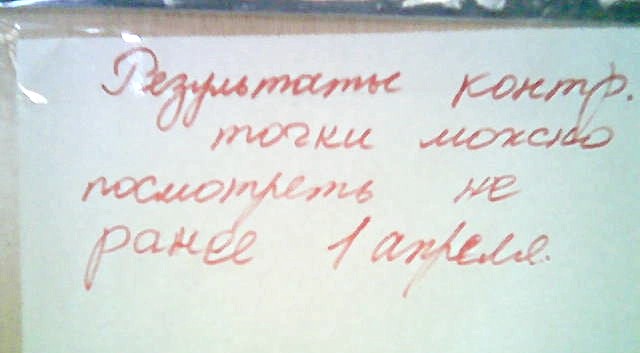 Результаты контр.
точки можно
посмотреть не
ранее 1 апреля.